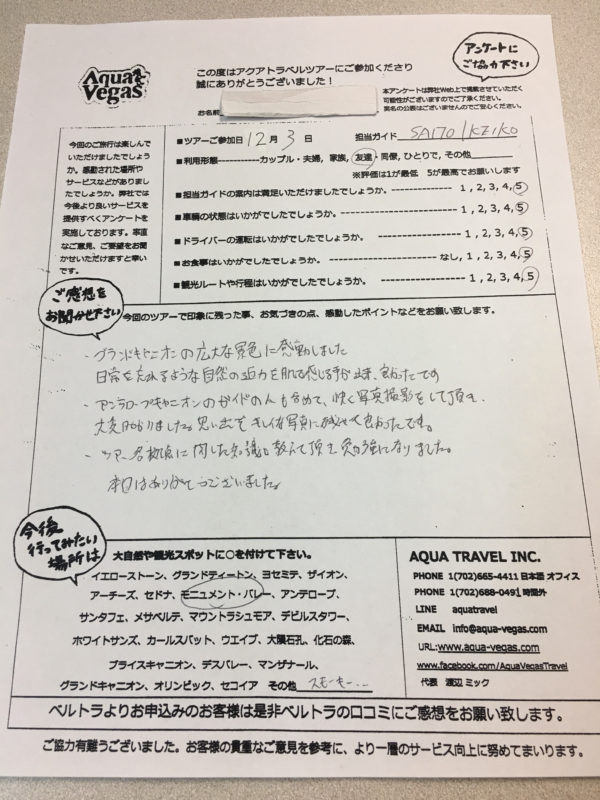 Aqua Vegas
この度はアクアトラベルツアーにご参加くださり
誠にありがとうございました！
アンケートに
ご協力下さい
お名前
本アンケートは弊社Web上で掲載させていただく
可能性がございますのでご了承ください。
実名の公表はございませんのでご安心ください。
今回のご旅行は楽しんで
いただけましたでしょう
か。感動された場所や
サービスなどがありまし
たでしょうか。弊社では
今後より良いサービスを
提供すべくアンケートを
実施しております。率直
なご意見、ご要望をお聞
かせいただけますと幸い
です。
■ツアーご参加日 12月 3日 担当ガイド SAITO / KEIKO
■利用形態------------カップル・夫婦, 家族, 友達・同僚, ひとりで, その他
※評価は1が最低 5が最高でお願いします
■担当ガイドの案内は満足いただけましたでしょうか。 1, 2, 3, 4, 5
■車輌の状態はいかがでしたでしょうか。 1, 2, 3, 4, 5
■ドライバーの運転はいかがでしたでしょうか。 1, 2, 3, 4, 5
■お食事はいかがでしたでしょうか。 なし, 1, 2, 3, 4, 5
■観光ルートや行程はいかがでしたでしょうか。 1, 2, 3, 4, 5
ご感想を
お聞かせ下さい
今回のツアーで印象に残った事、お気づきの点、感動したポイントなどをお願い致します。
・グランドキャニオンの広大な景色に感動しました
日常を忘れるような自然の迫力を肌で感じる事が出来、良かったです
・アンテロープキャニオンのガイドの人も含めて、快く写真撮影をして頂き、
大変助かりました。思い出をキレイな写真に残せて良かったです。
・ツアー名称頃に関した知識も教えて頂き勉強になりました。
本日はありがとうございました。
今後
行ってみたい
場所は
大自然や観光スポットに○を付けて下さい。
イエローストーン、グランドティートン、ヨセミテ、ザイオン、
アーチーズ、セドナ、モニュメント・バレー、アンテロープ、
サンタフェ、メサベルテ、マウントラシュモア、デビルスタワー、
ホワイトサンズ、カールスバット、ウエイブ、大隕石孔、化石の森、
ブライスキャニオン、デスバレー、マンザナール、
グランドキャニオン、オリンピック、セコイア その他 スモーキー...
AQUA TRAVEL INC.
PHONE 1(702)665-4411 日本語 オフィス
PHONE 1(702)688-0491 時間外
LINE aquatravel
EMAIL info@aqua-vegas.com
URL:www.aqua-vegas.com
www.facebook.com/AquaVegasTravel
代表 渡辺 ミック
ベルトラよりお申込みのお客様は是非ベルトラの口コミにご感想をお願い致します。
ご協力有難うございました。お客様の貴重なご意見を参考に、より一層のサービス向上に努めてまいります。